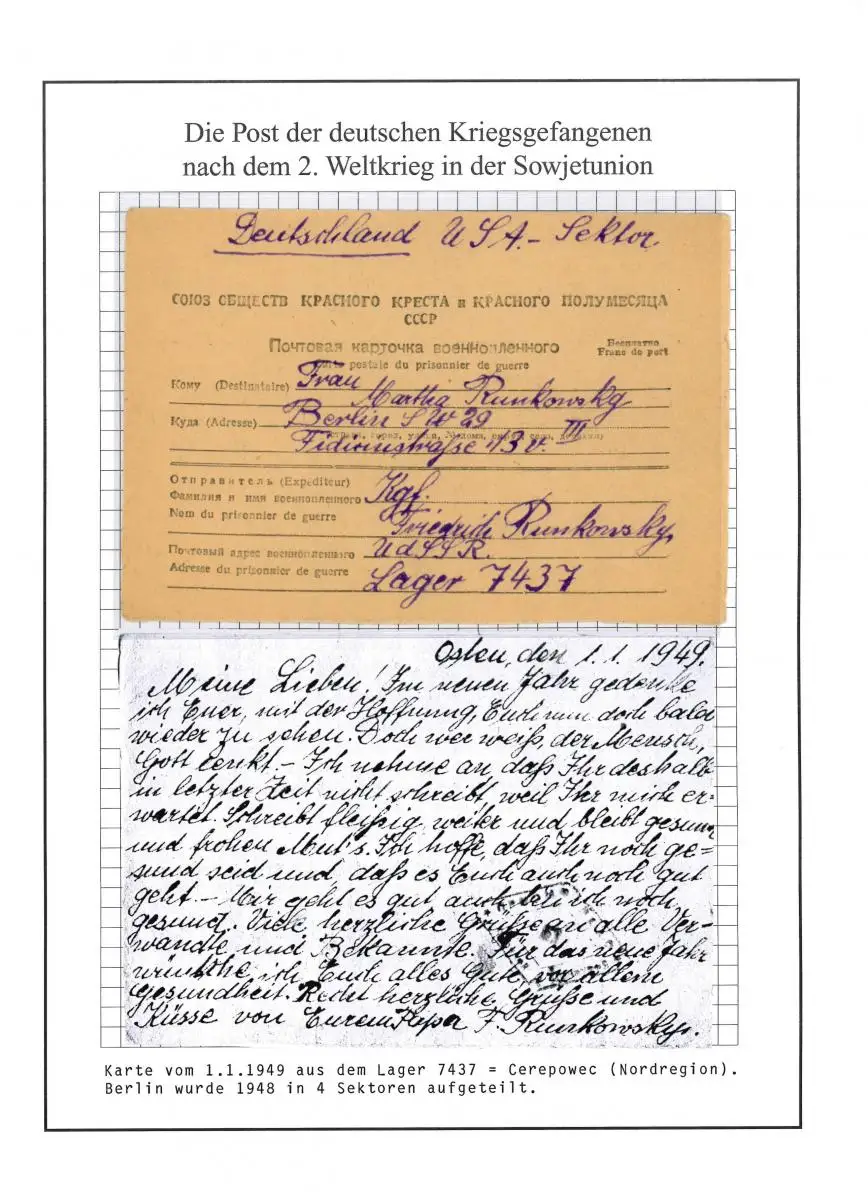 Die Post der deutschen Kriegsgefangenen
nach dem 2. Weltkrieg in der Sowjetunion
Deutschland USA.- Sektor.
СОЮЗ ОБЩЕСТВ КРАСНОГО КРЕСТА и КРАСНОГО ПОЛУМЕСЯЦА
СССР
Почтовая карточка военнопленного
Бесплатно
Franc de port
Carte postale du prisonnier de guerre
Кому (Destinataire) Frau
Martha Runkowsky
Куда (Adresse) Berlin SW 29
Fidicinstraße 43 v. III
Отправитель (Expéditeur)
Фамилия и имя военнопленного Kgf.
Nom du prisonnier de guerre Friedrich Runkowsky,
Почтовый адрес военнопленного UdSSR.
Adresse du prisonnier de guerre Lager 7437
Osten, den 1.1.1949.
Meine Lieben! Im neuen Jahr gedenke
ich Euer, mit der Hoffnung, Euch nun doch bald
wieder zu sehen. Doch wer weiß, der Mensch,
Gott lenkt.- Ich nehme an, daß Ihr deshalb
in letzter Zeit nicht schreibt, weil Ihr mich er-
wartet. Schreibt fleißig weiter und bleibt gesund
und frohen Mut's. Ich hoffe, daß Ihr noch ge=
sund seid und daß es Euch auch noch gut
geht.- Mir geht es gut auch bin ich noch
gesund. Viele herzliche Grüße an alle Ver-
wandte und Bekannte. Für das neue Jahr
wünsche ich Euch alles Gute, vor allem
Gesundheit. Recht herzliche Grüße und
Küsse von Eurem Papa F. Runkowsky.
Karte vom 1.1.1949 aus dem Lager 7437 = Cerepowec (Nordregion).
Berlin wurde 1948 in 4 Sektoren aufgeteilt.